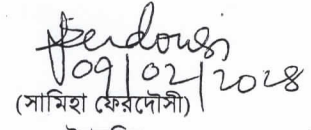 Ferdousi
09/02/2028
(সামিহা ফেরদৌসী)